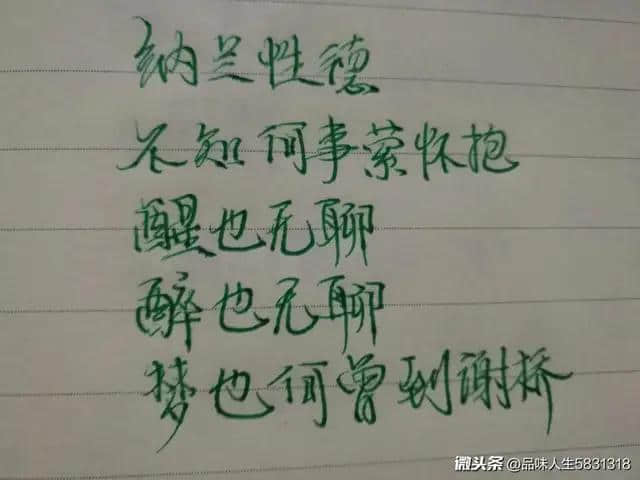 纳兰性德
不知何事萦怀抱
醒也无聊
醉也无聊
梦也何曾到谢桥
微头条 @品味人生5831318